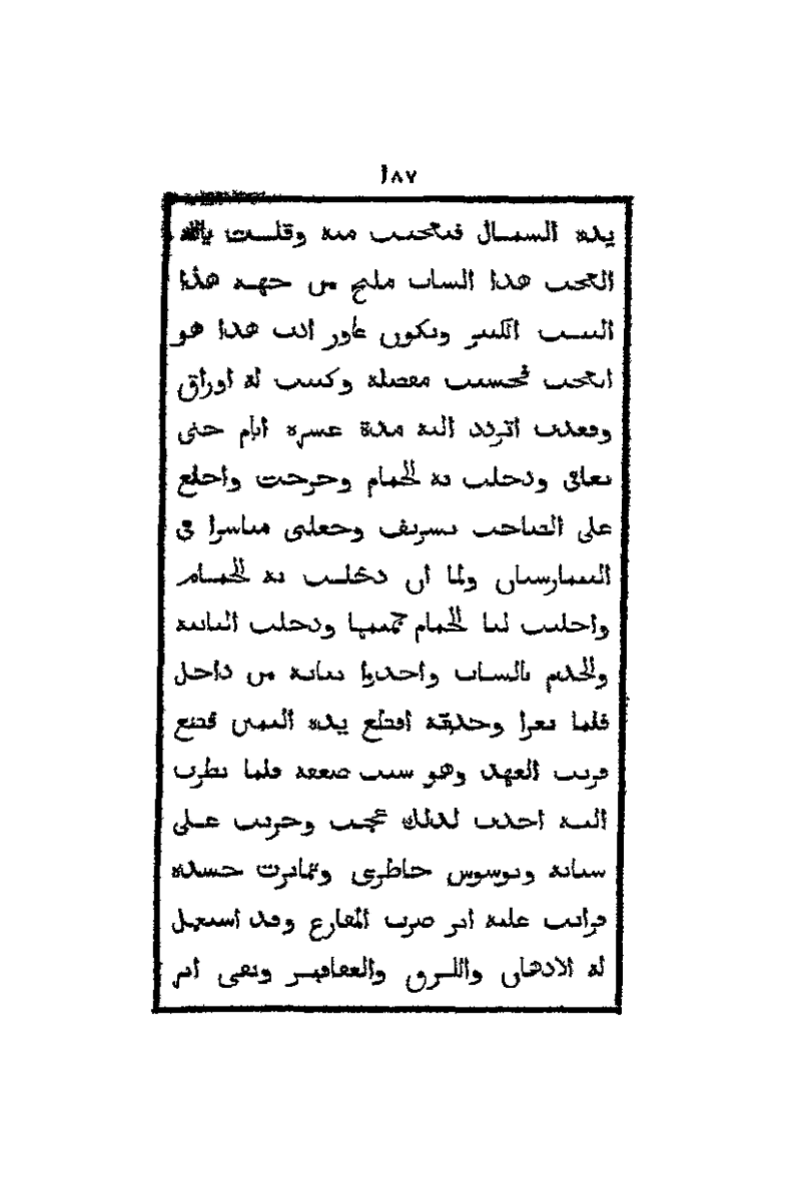 ١٨٧
يده الشمال فتعجبت منه وقلت يالله
العجب هذا الشاب مليح من جهة هذا
البيت الكبير ويكون عاور انت هذا هو
العجب فجسيت مفصله وكتبت له اوراق
وقعدت اتردد اليه مدة عشره ايام حتى
تعافى ودخلت به الحمام وخرجت واخلع
على الصاحب تشريف وجعلنى مباشرا فى
البيمارستان ولما ان دخلت به الحمام
واخليت لنا الحمام جميعها ودخلت الثانية
والخدم بالشاب واخدوا ثيابه من داخل
فلما تعرا وجدته اقطع يده اليمين قطع
قريب العهد وهو سبب ضعفه فلما نظرت
اليه اخدت لدلك عجب وحزنت على
شبابه وتوسوس خاطرى وتمايزت جسده
فرايت عليه اثر ضرب المقارع وقد استعمل
له الادهان واللزق والعقاقير وبقى اثر